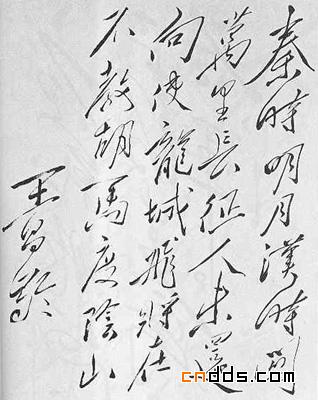 秦時明月漢時關
萬里長征人未還
向使龍城飛將在
不教胡馬度陰山
王昌齡
cndds.com